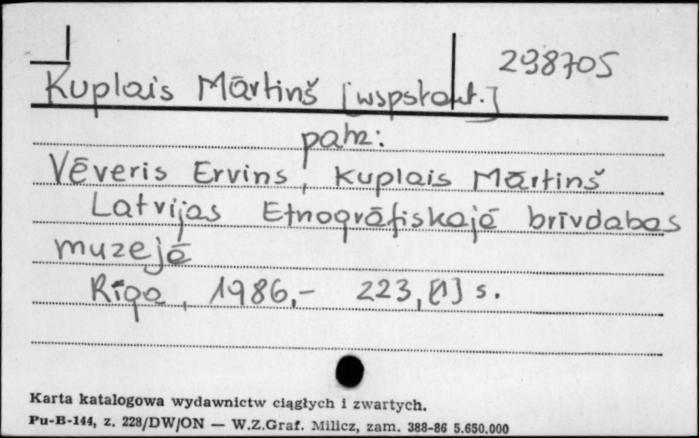 298705
Kuplais Mārtinš [współaut.]
patrz:
Vēveris Ervins, Kuplais Mārtinš
Latvijas Etnogrāfiskajā brīvdabas
muzejā
Rīga, 1986,- 223,[1] s.
Karta katalogowa wydawnictw ciągłych i zwartych.
Pu-B-144, z. 228/DW/ON — W.Z.Graf. Milicz, zam. 388-86 5.650.000